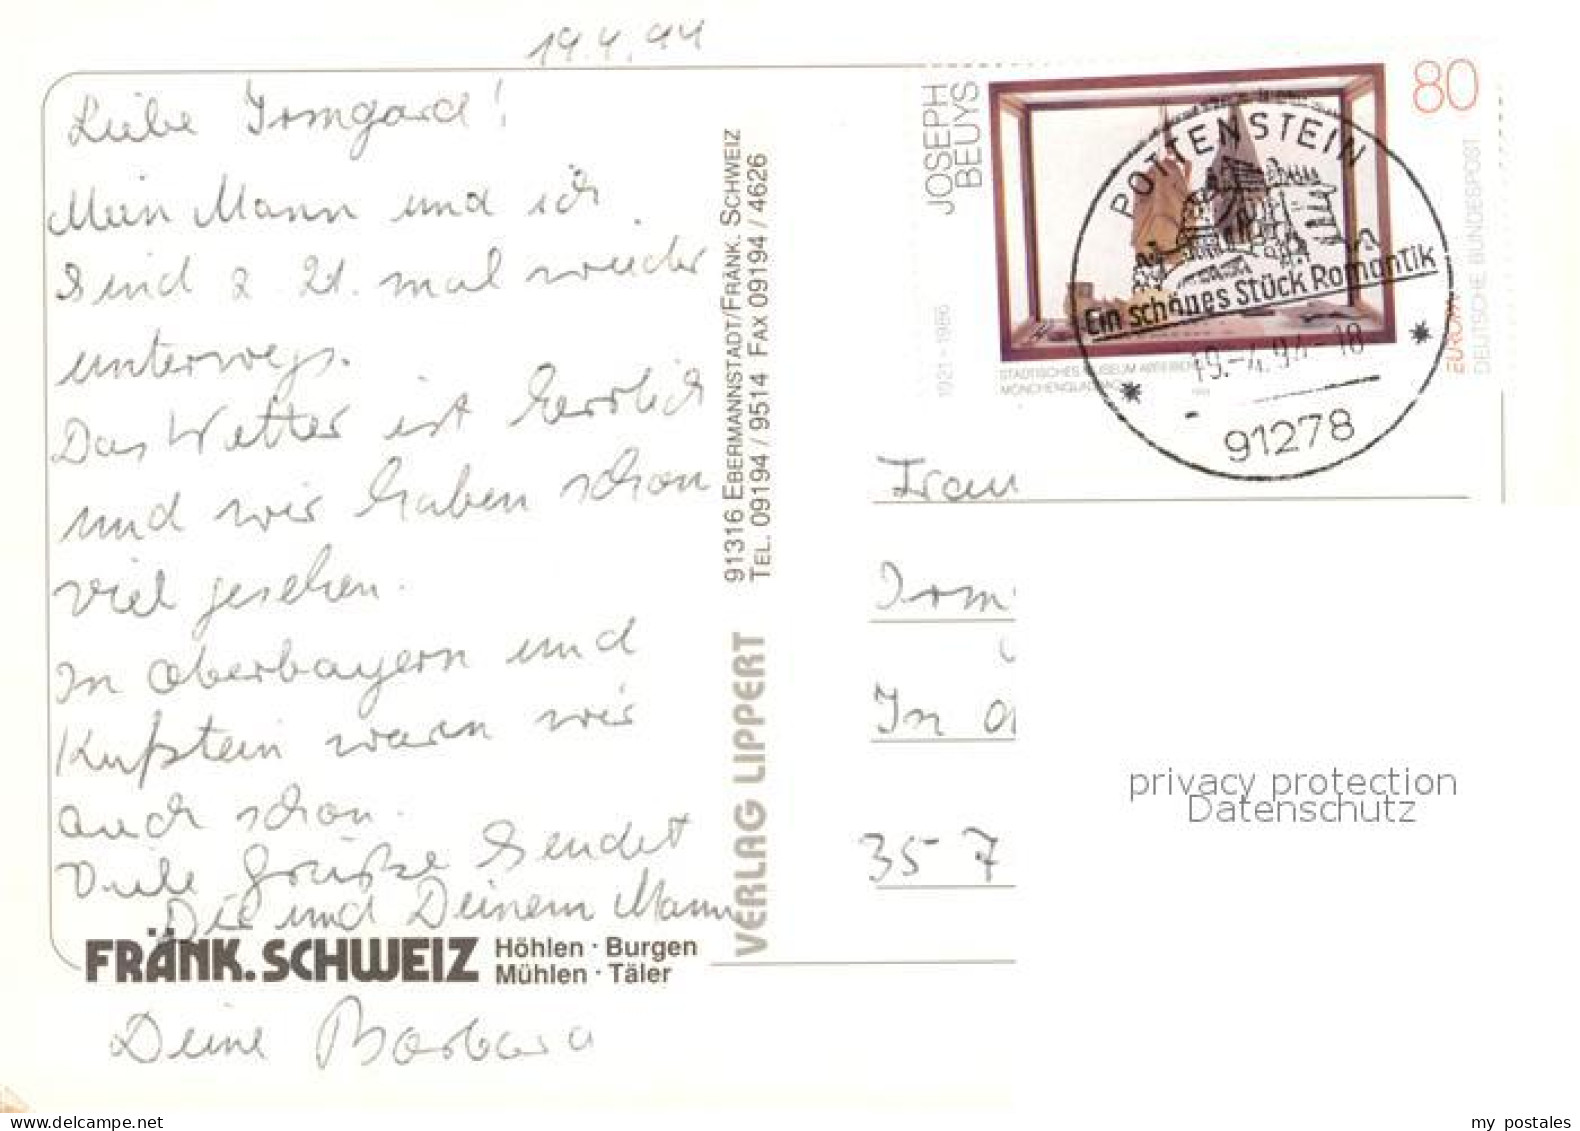 19.4.94
Liebe Irmgard!
Mein Mann und ich
sind z. Zt. mal wieder
unterwegs.
Das Wetter ist herrlich
und wir haben schon
viel gesehen.
In Oberbayern und
Kufstein waren wir
auch schon.
Viele Grüße sendet
Dir und Deinem Mann
FRÄNK. SCHWEIZ
Höhlen · Burgen
Mühlen · Täler
Deine Barbara
91316 EBERMANNSTADT/FRÄNK. SCHWEIZ
TEL. 09194 / 9514 FAX 09194 / 4626
VERLAG LIPPERT
JOSEPH
BEUYS
1921 - 1986
80
DEUTSCHE BUNDESPOST
EUROPA
STÄDTISCHES MUSEUM
MÖNCHENGLADBACH
POTTENSTEIN
Ein schönes Stück Romantik
19.-4.94-18
91278
Frau
Irm
In
35 7
privacy protection
Datenschutz
my postales